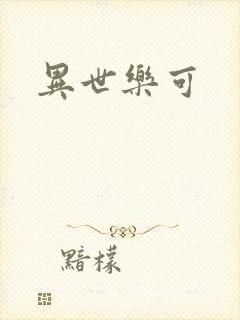 異世樂可
黯檬